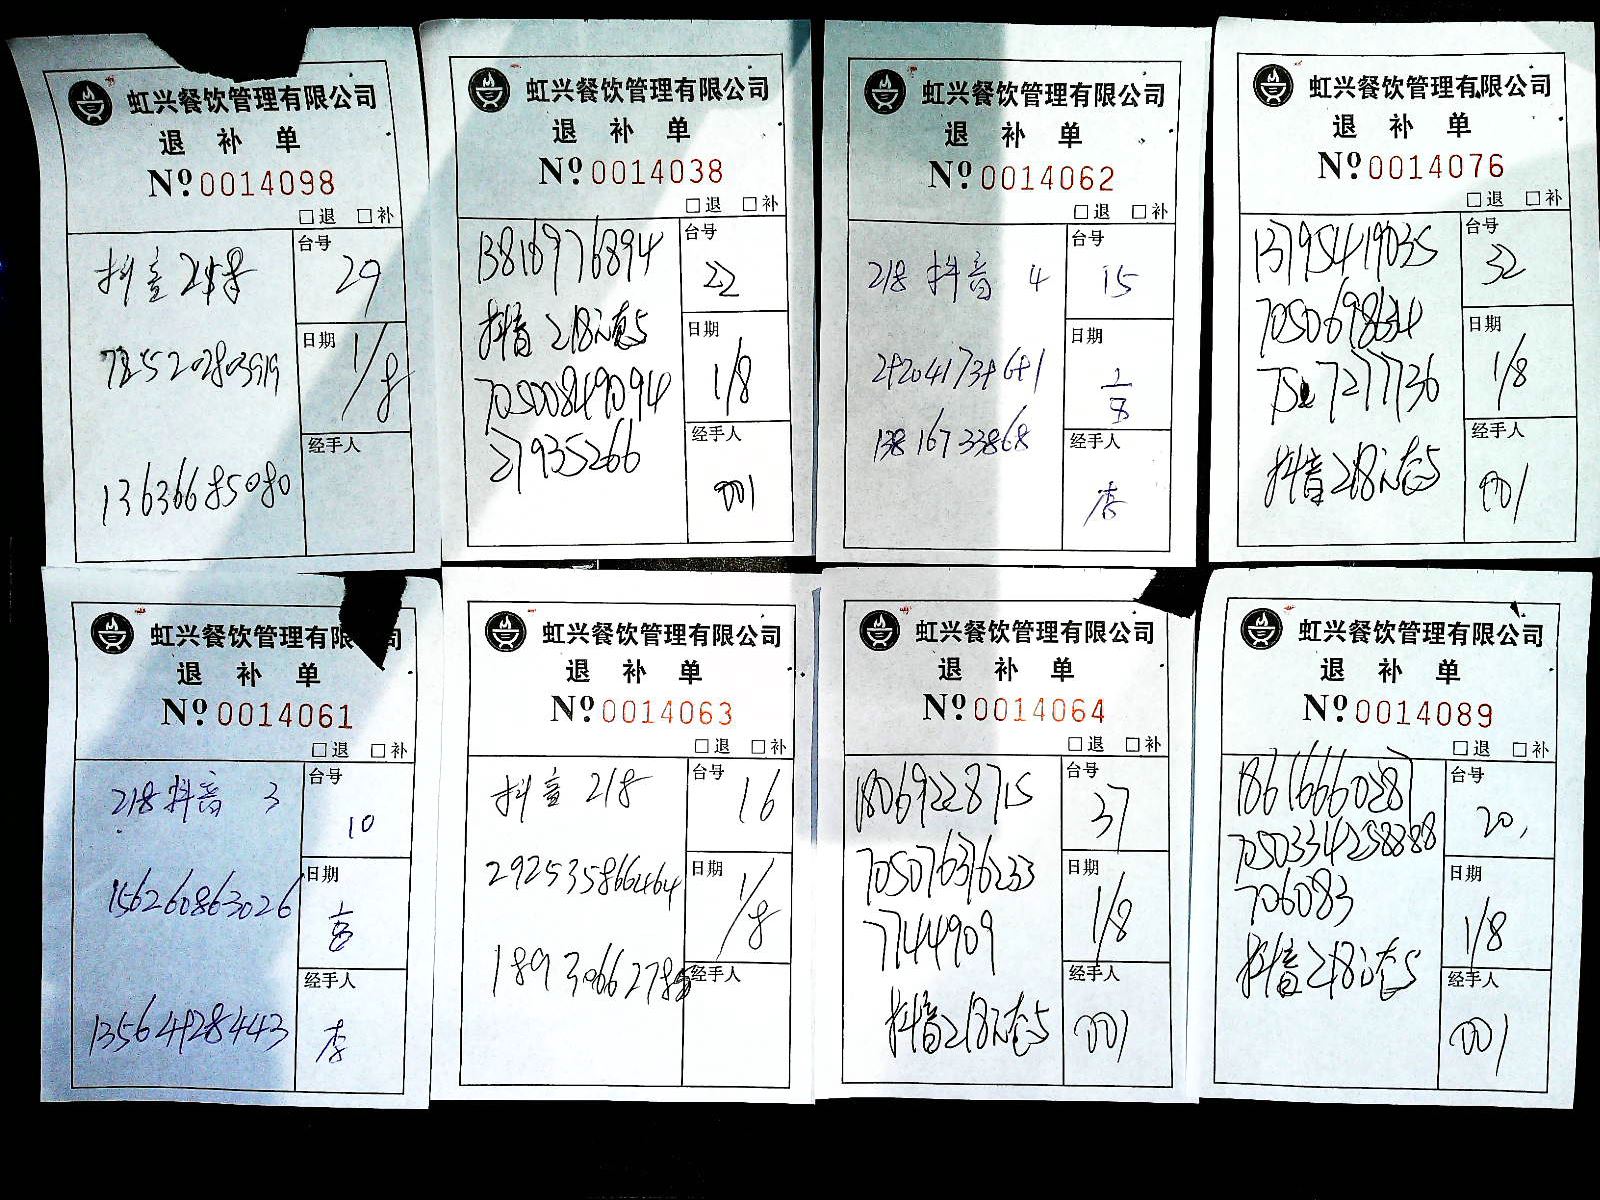 虹兴餐饮管理有限公司
退 补 单
Nº 0014098
□退 □补
抖音 218
台号
29
日期
1/8
13636685080
经手人
虹兴餐饮管理有限公司
退 补 单
Nº 0014038
□退 □补
13816976894
抖音218元套5
70500849094
27935266
台号
22
日期
1/8
经手人
001
虹兴餐饮管理有限公司
退 补 单
Nº 0014062
□退 □补
218 抖音 4
13816733868
台号
15
日期
1/8
经手人
李
虹兴餐饮管理有限公司
退 补 单
Nº 0014076
□退 □补
13795419035
抖音218元套5
台号
32
日期
1/8
经手人
001
虹兴餐饮管理有限公司
退 补 单
Nº 0014061
□退 □补
218 抖音 3
156260863026
13564928443
台号
10
日期
1/8
经手人
李
虹兴餐饮管理有限公司
退 补 单
Nº 0014063
□退 □补
抖音 218
292535866464
台号
16
日期
1/8
经手人
虹兴餐饮管理有限公司
退 补 单
Nº 0014064
□退 □补
18069228715
705076376233
7744909
抖音218元套5
台号
37
日期
1/8
经手人
001
虹兴餐饮管理有限公司
退 补 单
Nº 0014089
□退 □补
18616660287
7050334258888
706083
抖音218元套5
台号
20,
日期
1/8
经手人
001